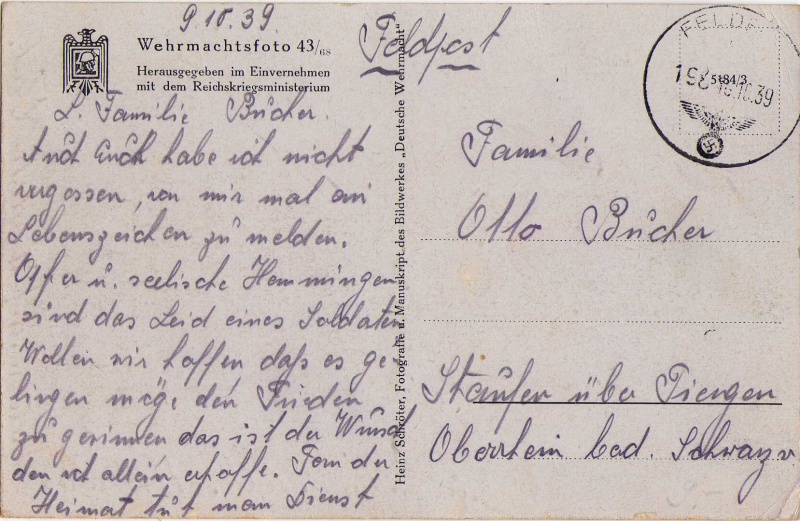 9.10.39
Wehrmachtsfoto 43/68
Herausgegeben im Einvernehmen
mit dem Reichskriegsministerium
L. Familie Bücher.
Auch Euch habe ich nicht
vergessen, von mir mal ein
Lebenszeichen zu melden.
Opfer u. seelische Hemmingen
sind das Leid eines Soldaten
Wollen wir hoffen daß es ge-
lingen möge den Frieden
zu gewinnen das ist der Wunsch
den ich allein erhoffe. Fern der
Heimat tut man Dienst
Heinz Schröter, Fotografie u. Manuskript des Bildwerkes „Deutsche Wehrmacht"
Feldpost
FELDP
5184/3
10.39
Familie
Otto Bücher
Staufen über Tiengen
Oberrhein bad. Schwarzw